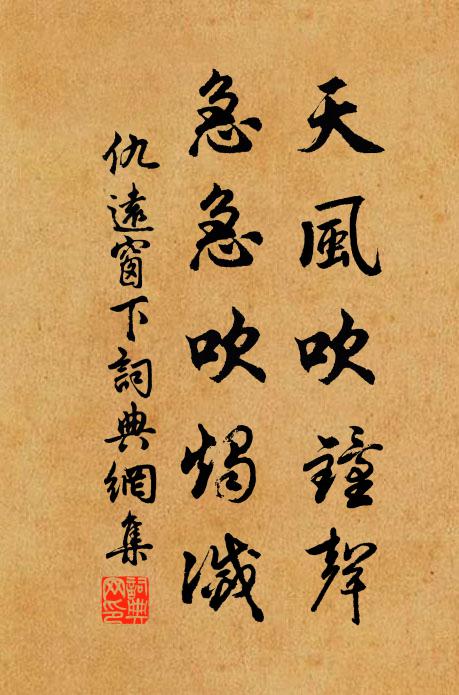 天風吹鐘聲
急急吹燭滅
仇遠窗下詞典網集
詞典
網印